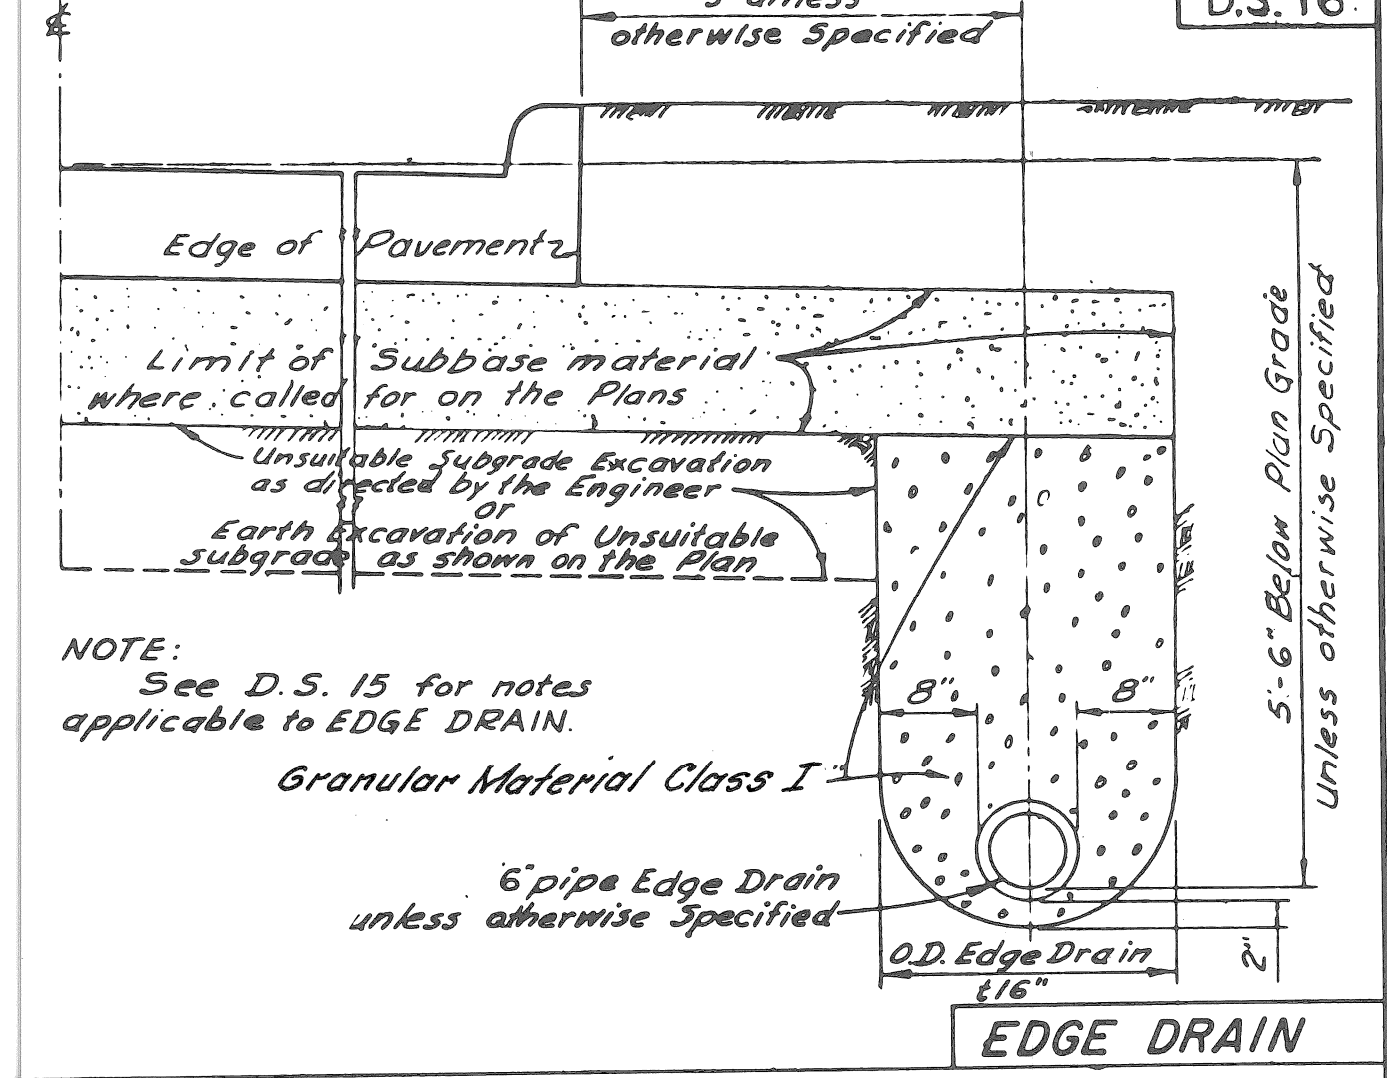 ℄
unless
D.S. 16.
otherwise Specified
Edge of Pavement
Limit of Subbase material
where called for on the Plans
Unsuitable Subgrade Excavation
as directed by the Engineer
or
Earth Excavation of Unsuitable
subgrade as shown on the Plan
5'-6" Below Plan Grade
unless otherwise Specified
NOTE:
See D.S. 15 for notes
applicable to EDGE DRAIN.
8" 8"
Granular Material Class I
6" pipe Edge Drain
unless otherwise Specified
O.D. Edge Drain
+16"
2"
EDGE DRAIN